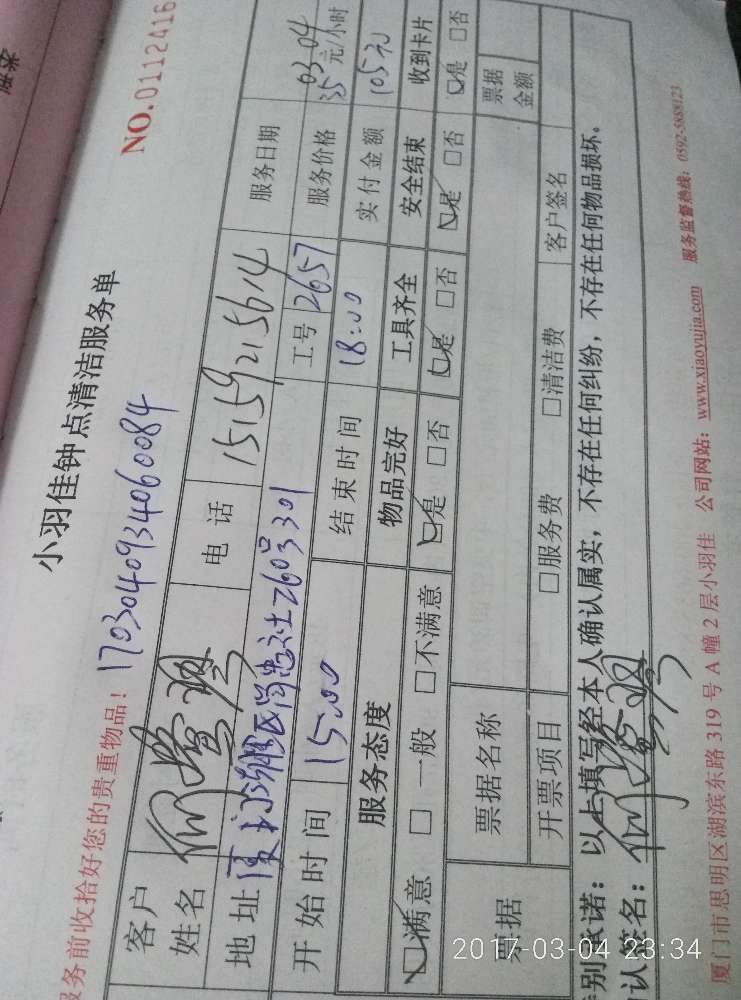 小羽佳钟点清洁服务单
NO.0112416
服务前收拾好您的贵重物品！ 1703040934060084
客户姓名 电话 15159215614 服务日期 03.04
地址 260号301 工号 2657 服务价格 35元/小时
开始时间 15:00 结束时间 18:00 实付金额 105元
服务态度 物品完好 工具齐全 安全结束 收到卡片
☑满意 □一般 □不满意 ☑是 □否 ☑是 □否 ☑是 □否 ☑是 □否
票据 票据名称 票据金额
开票项目 □服务费 □清洁费 客户签名
别承诺：以上填写经本人确认属实，不存在任何纠纷，不存在任何物品损坏。
认签名：
厦门市思明区湖滨东路 319 号 A 幢 2 层小羽佳 公司网站：www.xiaoyujia.com 服务监督热线：0592-5888123
2017-03-04 23:34